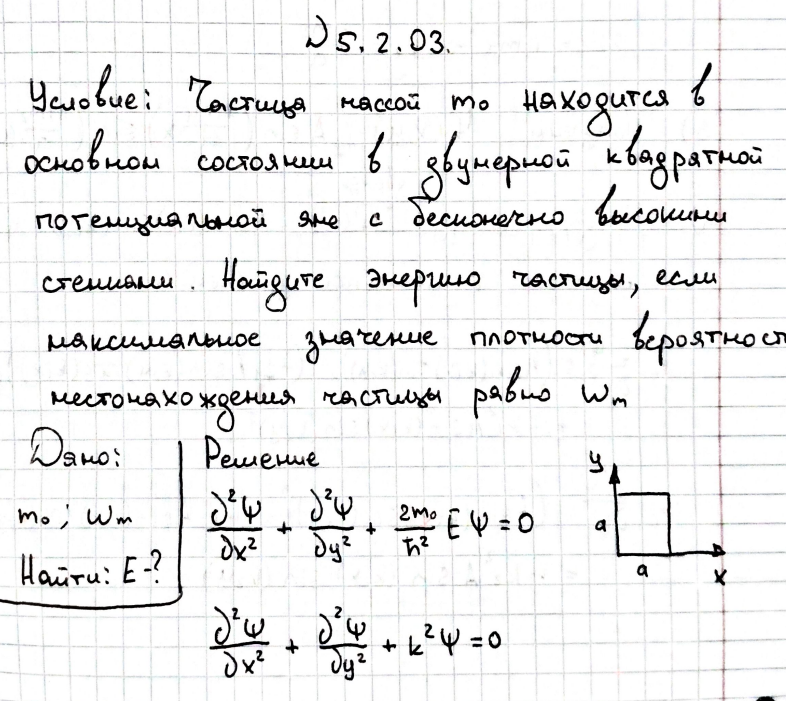 № 5.2.03.
Условие: Частица массой m₀ находится в
основном состоянии в двумерной квадратной
потенциальной яме с бесконечно высокими
стенками. Найдите энергию частицы, если
максимальное значение плотности вероятност
местонахождения частицы равно ωₘ
Дано:
m₀; ωₘ
Найти: E-?
Решение
∂²Ψ/∂x² + ∂²Ψ/∂y² + 2m₀/ħ² EΨ = 0
∂²Ψ/∂x² + ∂²Ψ/∂y² + k²Ψ = 0
y
a
a
x